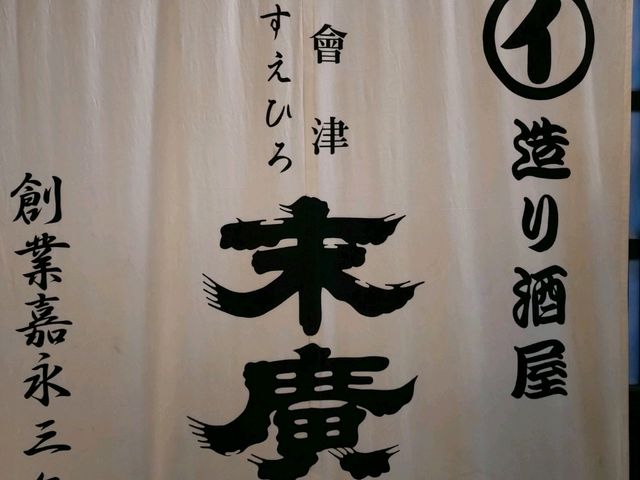 イ
造り酒屋
會津
すえひろ
末廣
創業嘉永三